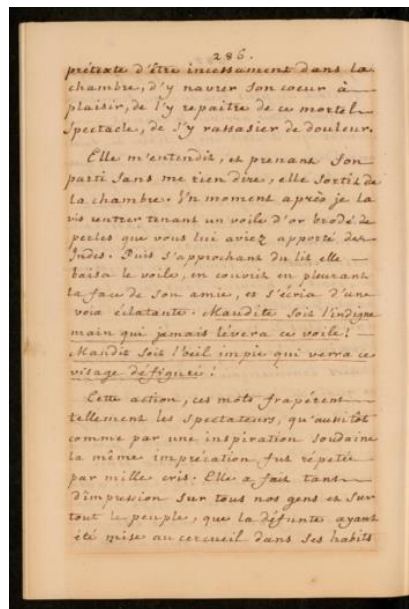 286.
prétexte d'être incessament dans la
chambre, d'y navrer son coeur à
plaisir, de l'y repaitre de ce mortel
spectacle, de s'y rassasier de douleur.
Elle m'entendit, et prenant son
parti sans me rien dire, elle sortit de
la chambre. Un moment après je la
vis rentrer tenant un voile d'or brodé de
perles que vous lui aviez apporté des
Indes. Puis s'approchant du lit, elle
baisa le voile, en couvrit en pleurant
la face de son amie, et s'écria d'une
voix éclatante. Maudite soit l'indigne
main qui jamais lévera ce voile!
Maudit soit l'oeil impie qui verra ce
visage défiguré!
Cette action, ces mots frapérent
tellement les spectateurs, qu'aussitôt
comme par une inspiration soudaine
la même imprécation fut répetée
par mille cris. Elle a fait tant
d'impression sur tous nos gens et sur
tout le peuple, que la défunte ayant
été mise au cercueil dans ses habits